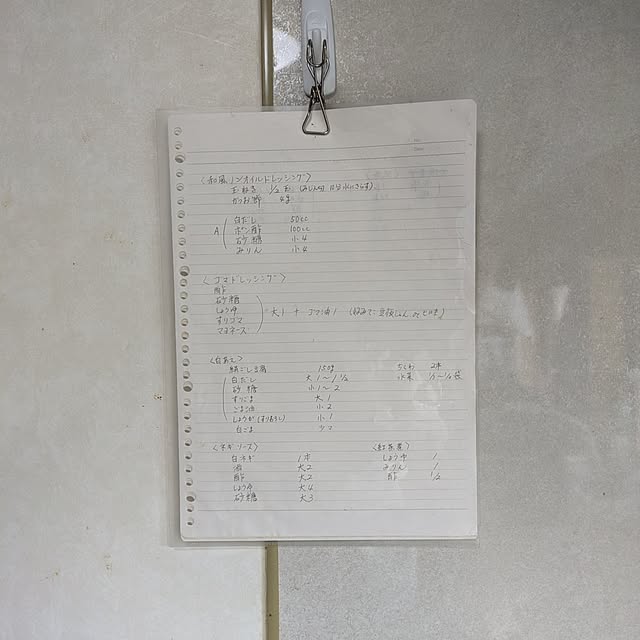 〈和風ノンオイルドレッシング〉
玉ねぎ 1/2玉 (みじん切り 水にさらす)
かつお節 4g
A
白だし 50cc
ポン酢 100cc
砂糖 小4
みりん 小4
〈ゴマドレッシング〉
酢
砂糖
しょうゆ 大1 + ゴマ油1
すりゴマ
マヨネーズ
〈白あえ〉
絹ごし豆腐 150g ちくわ 2本
白だし 大1〜1 1/2 水菜 1/3〜1/2袋
砂糖 小1〜2
すりごま 大1
ごま油 小2
しょうが(すりおろし) 小1
白ごま 少々
〈ネギソース〉 〈紅茶煮〉
白ネギ 1本 しょうゆ 1
酒 大2 みりん 1
酢 大2 酢 1/2
しょうゆ 大4
砂糖 大3